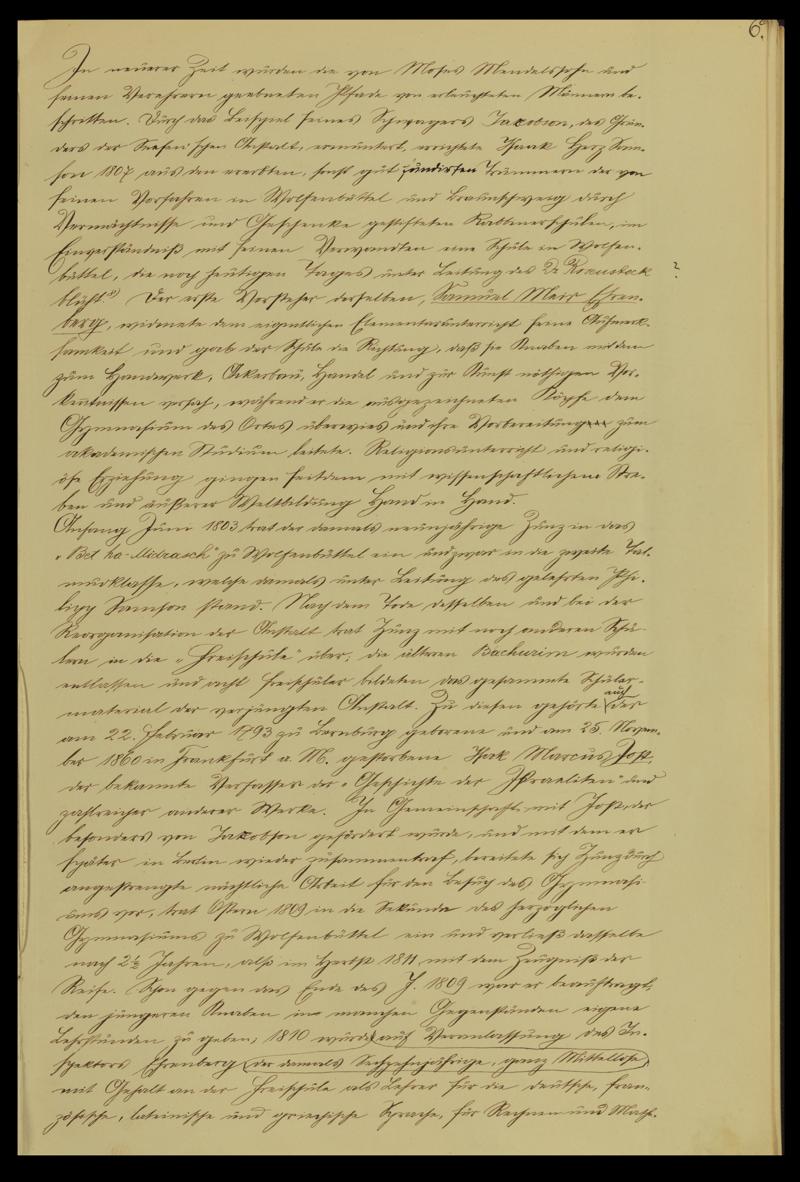 6.
In neuerer Zeit wurden die von Moses Mendelssohn und
seinen Verehrern geebneten Pfade von erleuchteten Männern be-
schritten. Durch das Beispiel seines Schwagers Jakobson, des Grün-
ders der Seesen'schen Anstalt, ermuntert, errichtete Isaak Herz Sam-
son 1807 aus den ererbten, sonst gut fundirten Trümmern der von
seinen Vorfahren in Wolfenbüttel und Braunschweig durch
Vermächtnisse und Geschenke gestifteten Rabbinerschulen, im
Einverständniß mit seinen Verwandten eine Schule in Wolfen-
büttel, die noch heutigen Tages unter Leitung des Dr. Rosenstock ?
blüht. Der erste Vorsteher derselben, Samuel Meir Ehren-
berg, widmete dem eigentlichen Elementarunterricht seine Aufmerk-
samkeit und gab der Schule die Richtung, daß sie Knaben mit den
zum Handwerk, Ackerbau, Handel und zur Kunst nöthigen Vor-
kenntnissen versah, während er die ausgezeichneten Köpfe dem
Gymnasium des Ortes überwies und ihre Vorbereitung zum
akademischen Studium leitete. Religionsunterricht und religi-
öse Erziehung gingen seitdem mit wissenschaftlichem Stre-
ben und äußerer Weltbildung Hand in Hand.
Anfang Juni 1803 trat der damals neunjährige Zunz in das
„Bet ha-Midrasch" zu Wolfenbüttel ein und zwar in die zweite Tal-
mudklasse, welche damals unter Leitung des gelehrten Phi-
lipp Samson stand. Nach dem Tode desselben und bei der
Reorganisation der Anstalt trat Zunz mit noch anderen Schü-
lern in die „Freischule" über; die älteren Bachurim wurden
entlassen und acht Freischüler bildeten das gesammte Schüler-
material der verjüngten Anstalt. Zu diesen gehörte auch der
am 22. Februar 1793 zu Bernburg geborene und am 25. Novem-
ber 1860 in Frankfurt a. M. gestorbene Isak Marcus Jost,
der bekannte Verfasser der „Geschichte der Israeliten" und
zahlreicher anderer Werke. In Gemeinschaft mit Jost, der
besonders von Jakobson gefördert wurde, und mit dem er
später in Berlin wieder zusammentraf, bereitete sich Zunz durch
angestrengte nächtliche Arbeit für den Besuch des Gymnasi-
ums vor, trat Ostern 1809 in die Sekunda des herzoglichen
Gymnasiums zu Wolfenbüttel ein und verließ dasselbe
nach 2½ Jahren, also im Herbst 1811, mit dem Zeugniß der
Reife. Schon gegen das Ende des J. 1809 war er beauftragt,
den jüngeren Knaben in manchen Gegenständen eigene
Lehrstunden zu geben; 1810 wurde auf Veranlassung des In-
spektors Ehrenberg (der damals Sechzehnjährige, ganz Mittellose)
mit Gehalt an der Freischule als Lehrer für die deutsche, fran-
zösische, lateinische und griechische Sprache, für Rechnen und Math-